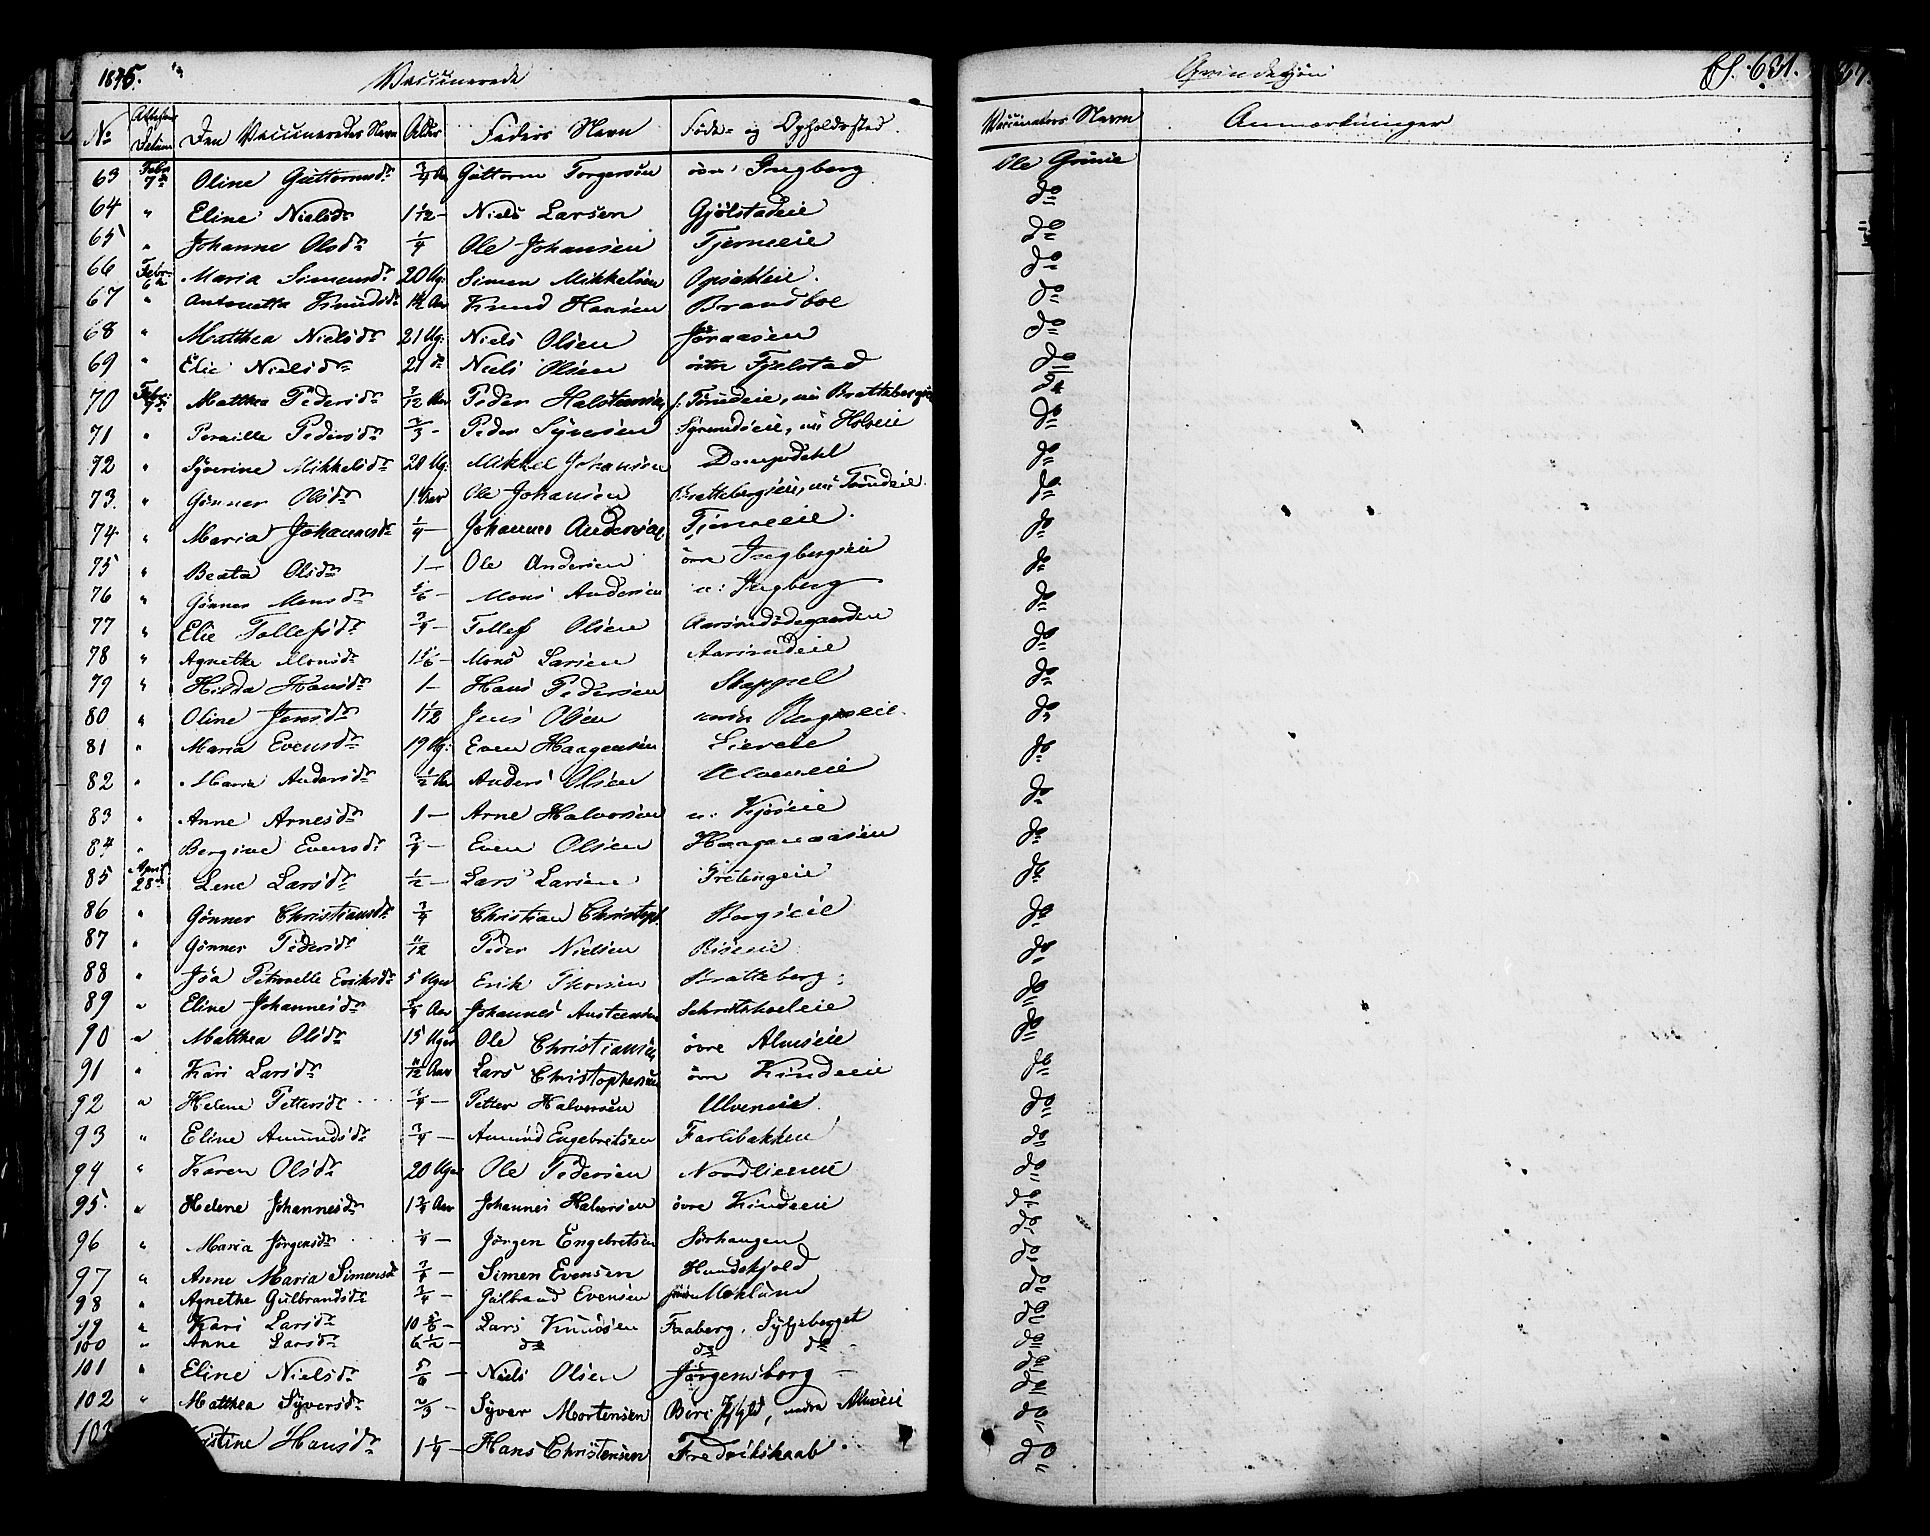 1875. Vaccinerede
Qvindekjøn fol. 631.
No Attestens Datum Den Vaccineredes Navn Alder Faders Navn Føde- og Opholdssted. Vaccinators Navn Anmærkninger
63 Febr. 7de Oline Guttormsdr 3/4 Aar Guttorm Torgersøn övre Ingberg Ole Grinie
64 " Eline Nielsdr 1 1/12 - Niels Larsen Gjölstadeie do
65 " Johanne Olsdr 1/4 Ole Johansen Tjerneeie do
66 Febr. Maria Simensdr 20 Ug. Simen Mikkelsen Opsakeie. do
67 " Antonetta Knudsdr 1 1/2 Aar Knud Hansen Brandboe do
68 " Matthea Nielsdr 21 Ug. Niels Olsen do
69 " Elie Nielsdr 21 do Niels Olsen Fjelstad do
70 Febr. 7de Matthea Pedersdr 7/12 Aar Peder Halstensen Brattebergseie do
71 " Pernille Pedersdr 2/3 - Peder Syversen nu Holseie do
72 " Syverine Mikkelsdr 20 Ug. Mikkel Johansen Dampedahl do
73. " Gunner Olsdr 1 Aar Ole Johansen Brattebergseie, nu do
74 " Maria Johannesdr 1/4 - Johannes Andersen Tjerneeie. do
75 " Beata Olsdr 1 - Ole Andersen övre Ingbergseie do
76 " Gunner Monsdr 5/6 - Mons Andersen n: Ingberg do
77 " Elie Tollefsdr 3/4 - Tollef Olsen do
78 " Agnethe Monsdr 1 1/6 - Mons Larsen do
79 " Hilda Hansdr 1 - Hans Pedersen Skappel do
80 " Oline Jensdr 1 1/12 Jens Olsen Bergseie. do
81 " Maria Evensdr 19 Ug. Even Haagensen Liereie do
82 " Maria Andersdr 1/2 Aar Anders Olsen Ulveneie do
83 " Anne Arnesdr 1 - Arne Halvorsen n: Kjöseie do
84 " Bergine Evensdr 3/4 - Even Olsen Haaganaasen do
85 April 28de Lene Larsdr 1/2 - Lars Larsen do
86 " Gunner Christiansdr 3/4 Christian Christoph. Bergseie do
87 " Gunner Pedersdr 11/12 Peder Nielsen Riseeie do
88 " Petronelle Eriksdr 5 Uger Erik Thorsen Bratteberg. do
89 " Eline Johannesdr 3/4 Aar Johannes Austensen do
90 " Matthea Olsdr 15 Uger Ole Christiansen övre Almseie do
91 " Kari Larsdr 11/12 Aar Lars Christophersen övre Kindseie do
92 " Helene Pettersdr 3/4 - Petter Halversen Ulveneie do
93 " Eline Amundsdr 3/4 - Amund Engebretsen Farlibakken do
94 " Karen Olsdr 20 Uger Ole Pedersen Nordlieneie do
95. " Helene Johannesdr 1 3/4 Aar Johannes Halvorsen övre Kindseie do
96 " Maria Jörgensdr 1/4 - Jörgen Engebretsen Sörhaugen do
97 " Anne Maria Simensdr 3/4 - Simen Evensen Hundskjold do
98 " Agnethe Gulbrandsdr 3/4 - Gulbrand Evensen Moklund do
99 " Kari Larsdr 10 5/6 - Lars Knudsen Faaberg, do
100 " Anne Larsdr 6 1/2 - do do do do
101 " Eline Nielsdr 5/6 - Niels Olsen Jörgensborg do
102 " Matthea Syversdr 2/3 - Syver Mortensen Biri nedre Almseie do
Hansdr 1 1/4 - Hans Christensen Fredrikskaab. do